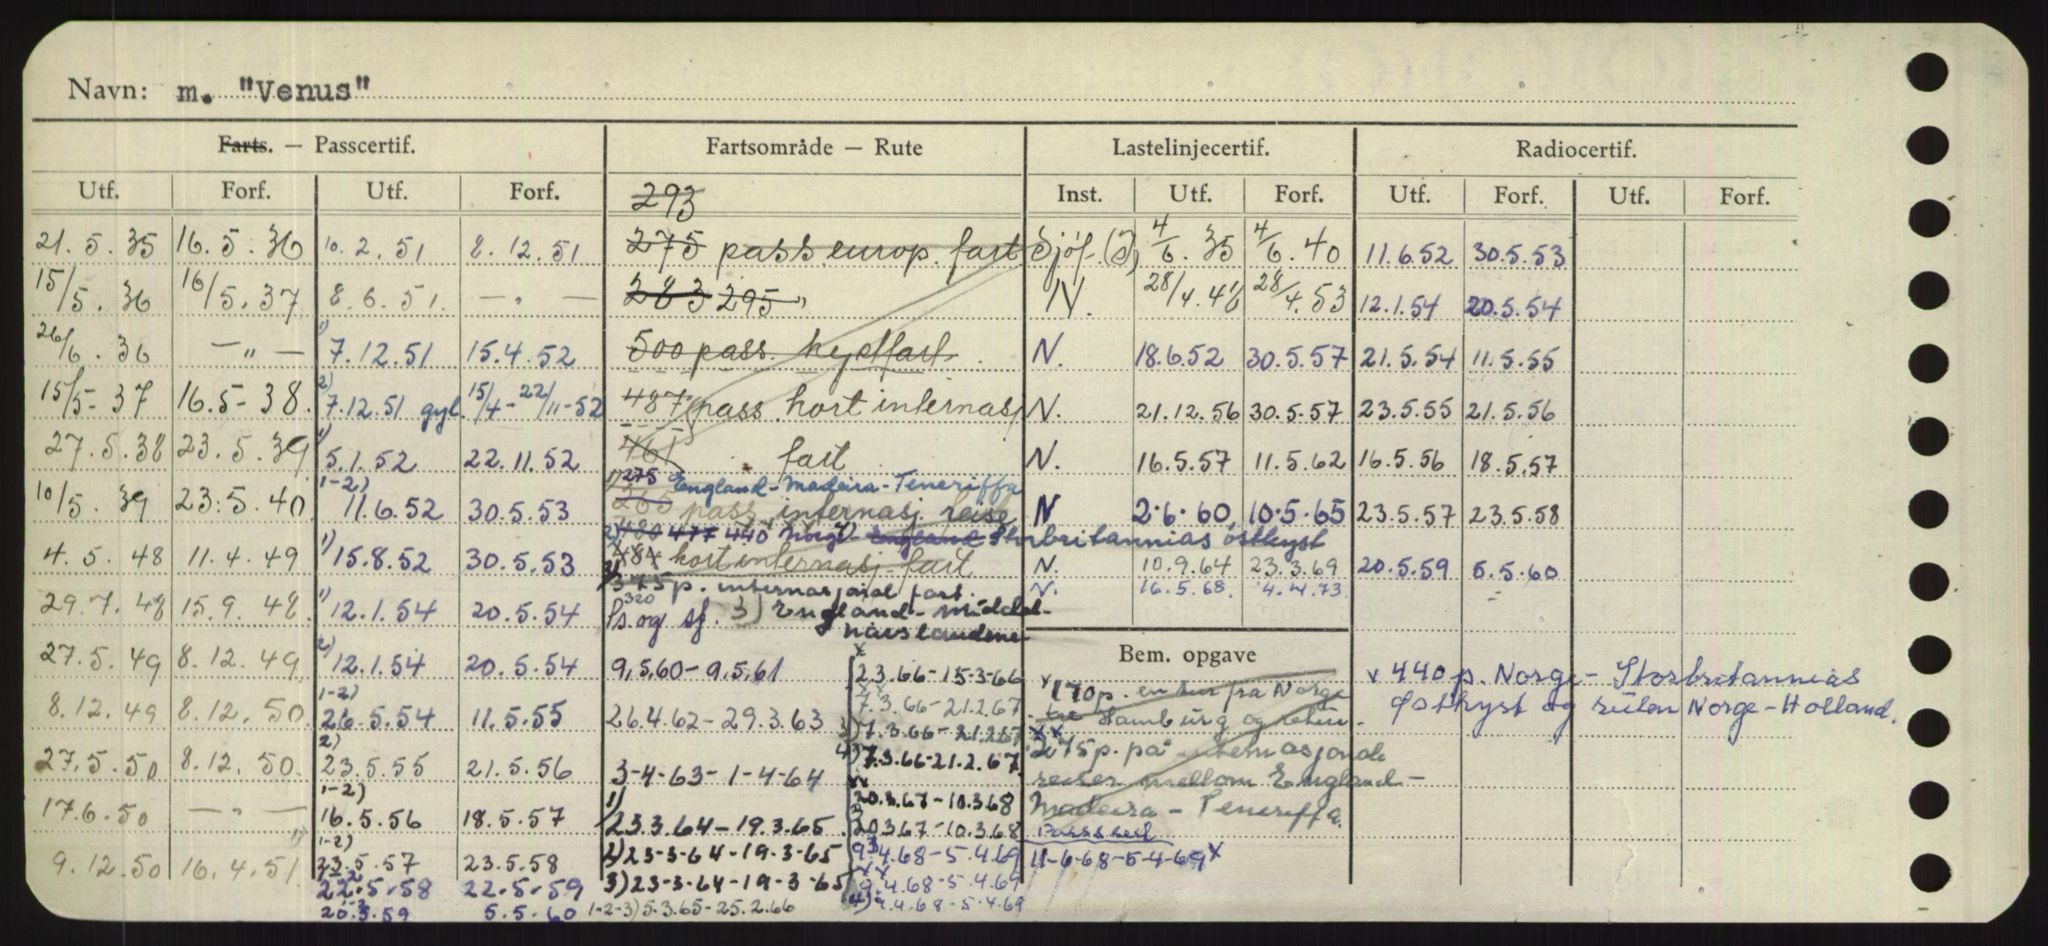 Navn: m. "Venus"
Farts. — Passcertif. Fartsområde — Rute Lastelinjecertif. Radiocertif.
Utf. Forf. Utf. Forf. 293 Inst. Utf. Forf. Utf. Forf. Utf. Forf.
21.5.35 16.5.36 10.2.51 8.12.51 275 pass europ. fart Sjöf. 4/6.35 4/6.40 11.6.52 30.5.53
15/5.36 16/5.37 8.6.51. — " — 283 295 " N. 28/4.48 28/4.53 12.1.54 20.5.54
26/6.36 — " — 1) 7.12.51 15.4.52 500 pass. N. 18.6.52 30.5.57 21.5.54 11.5.55
15/5-37 16.5-38. 2) 7.12.51 gyl. 15/4-22/11-52 487 pass. kort internasj N. 21.12.56 30.5.57 23.5.55 21.5.56
27.5.38 23.5.39 1) 5.1.52 22.11.52 461 fart N. 16.5.57 11.5.62 16.5.56 18.5.57
1) 275 England-Madeira-Teneriffa
10/5.39 23.5.40 1-2) 11.6.52 30.5.53 265 pass internasj. reise N 2.6.60 10.5.65 23.5.57 23.5.58
2) 480 477 440 Norge- England Storbritannias østkyst
4.5.48 11.4.49 1) 15.8.52 30.5.53 484 kort internasj. fart N. 10.9.64 23.3.69 20.5.59 5.5.60
3) 375 p. internasjonal fart. N. 16.5.68. 4.4.73.
29.7.48 15.9.48 1) 12.1.54 20.5.54 320 Ps og sf. 3) England-Middel-
havslandene
27.5.49 8.12.49 2) 12.1.54 20.5.54 9.5.60-9.5.61 x 23.66-15-3-66 Bem. opgave
8.12.49 8.12.50 1-2) 26.5.54 11.5.55 26.4.62-29.3.63 7.3.66-21.2.67 x 170 p. en tur fra Norge x 440 p. Norge-Storbritannias
3) 7.3.66-21.2.67 Hamburg og retur. Østkyst og ruten Norge-Holland.
27.5.50 8.12.50 2) 23.5.55 21.5.56 3-4-63-1-4-64 4) 7.3.66-21.2.67 xx 275 p. på internasjonale
17.6.50 — " — 1-2) 16.5.56 18.5.57 xx 20.3.67-10.3.68 reiser mellom England-
1) 23.3.64-19.3.65 3) 20.3.67-10.3.68 Madeira-Teneriffa.
9.12.50 16.4.51 1-2) 23.5.57 23.5.58 2) 23-3-64-19-3-65 9.4.68-5.4.69 Passsert
22.5.58 22.5.59 3) 23-3-64-19-3-65 xx 9.4.68-5.4.69 11-6-68-5-4-69 x
20.5.59 5.5.60 1-2-3) 5.3.65-25.2.66 4) 9.4.68-5.4.69